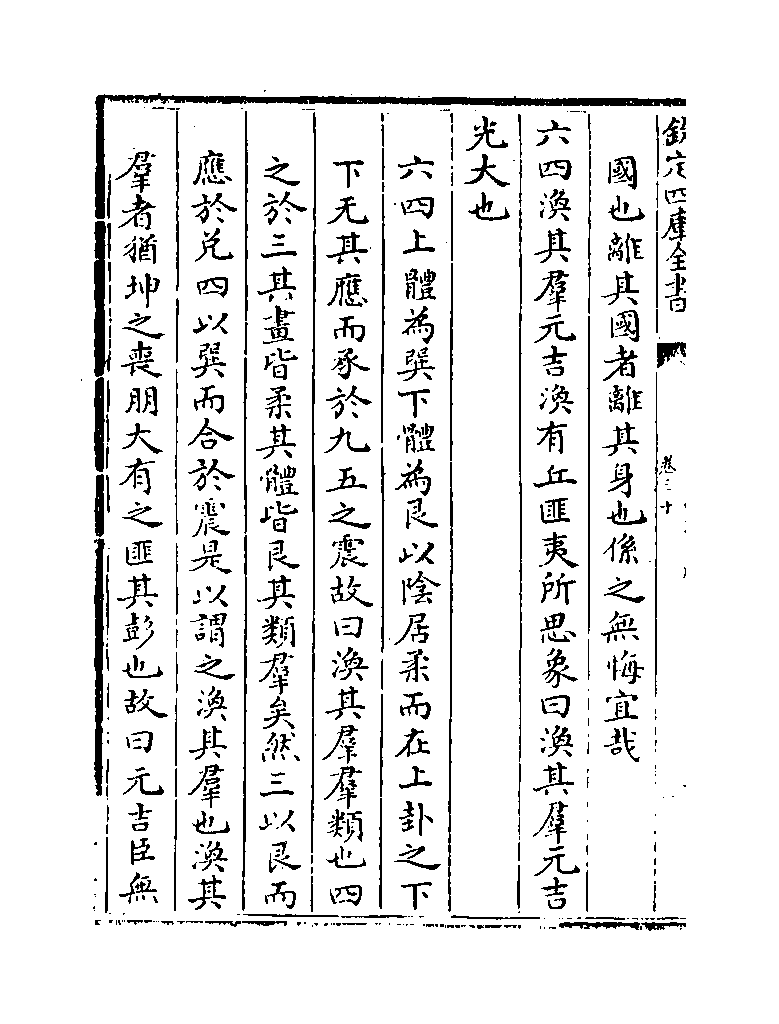 欽定四庫全書
卷三十
國也離其國者離其身也係之無悔宜哉
六四渙其羣元吉渙有丘匪夷所思象曰渙其羣元吉
光大也
六四上體為巽下體為艮以陰居柔而在上卦之下
下无其應而承於九五之震故曰渙其羣羣類也四
之於三其畫皆柔其體皆艮其類羣矣然三以艮而
應於兌四以巽而合於震是以謂之渙其羣也渙其
羣者猶坤之喪朋大有之匪其彭也故曰元吉臣無